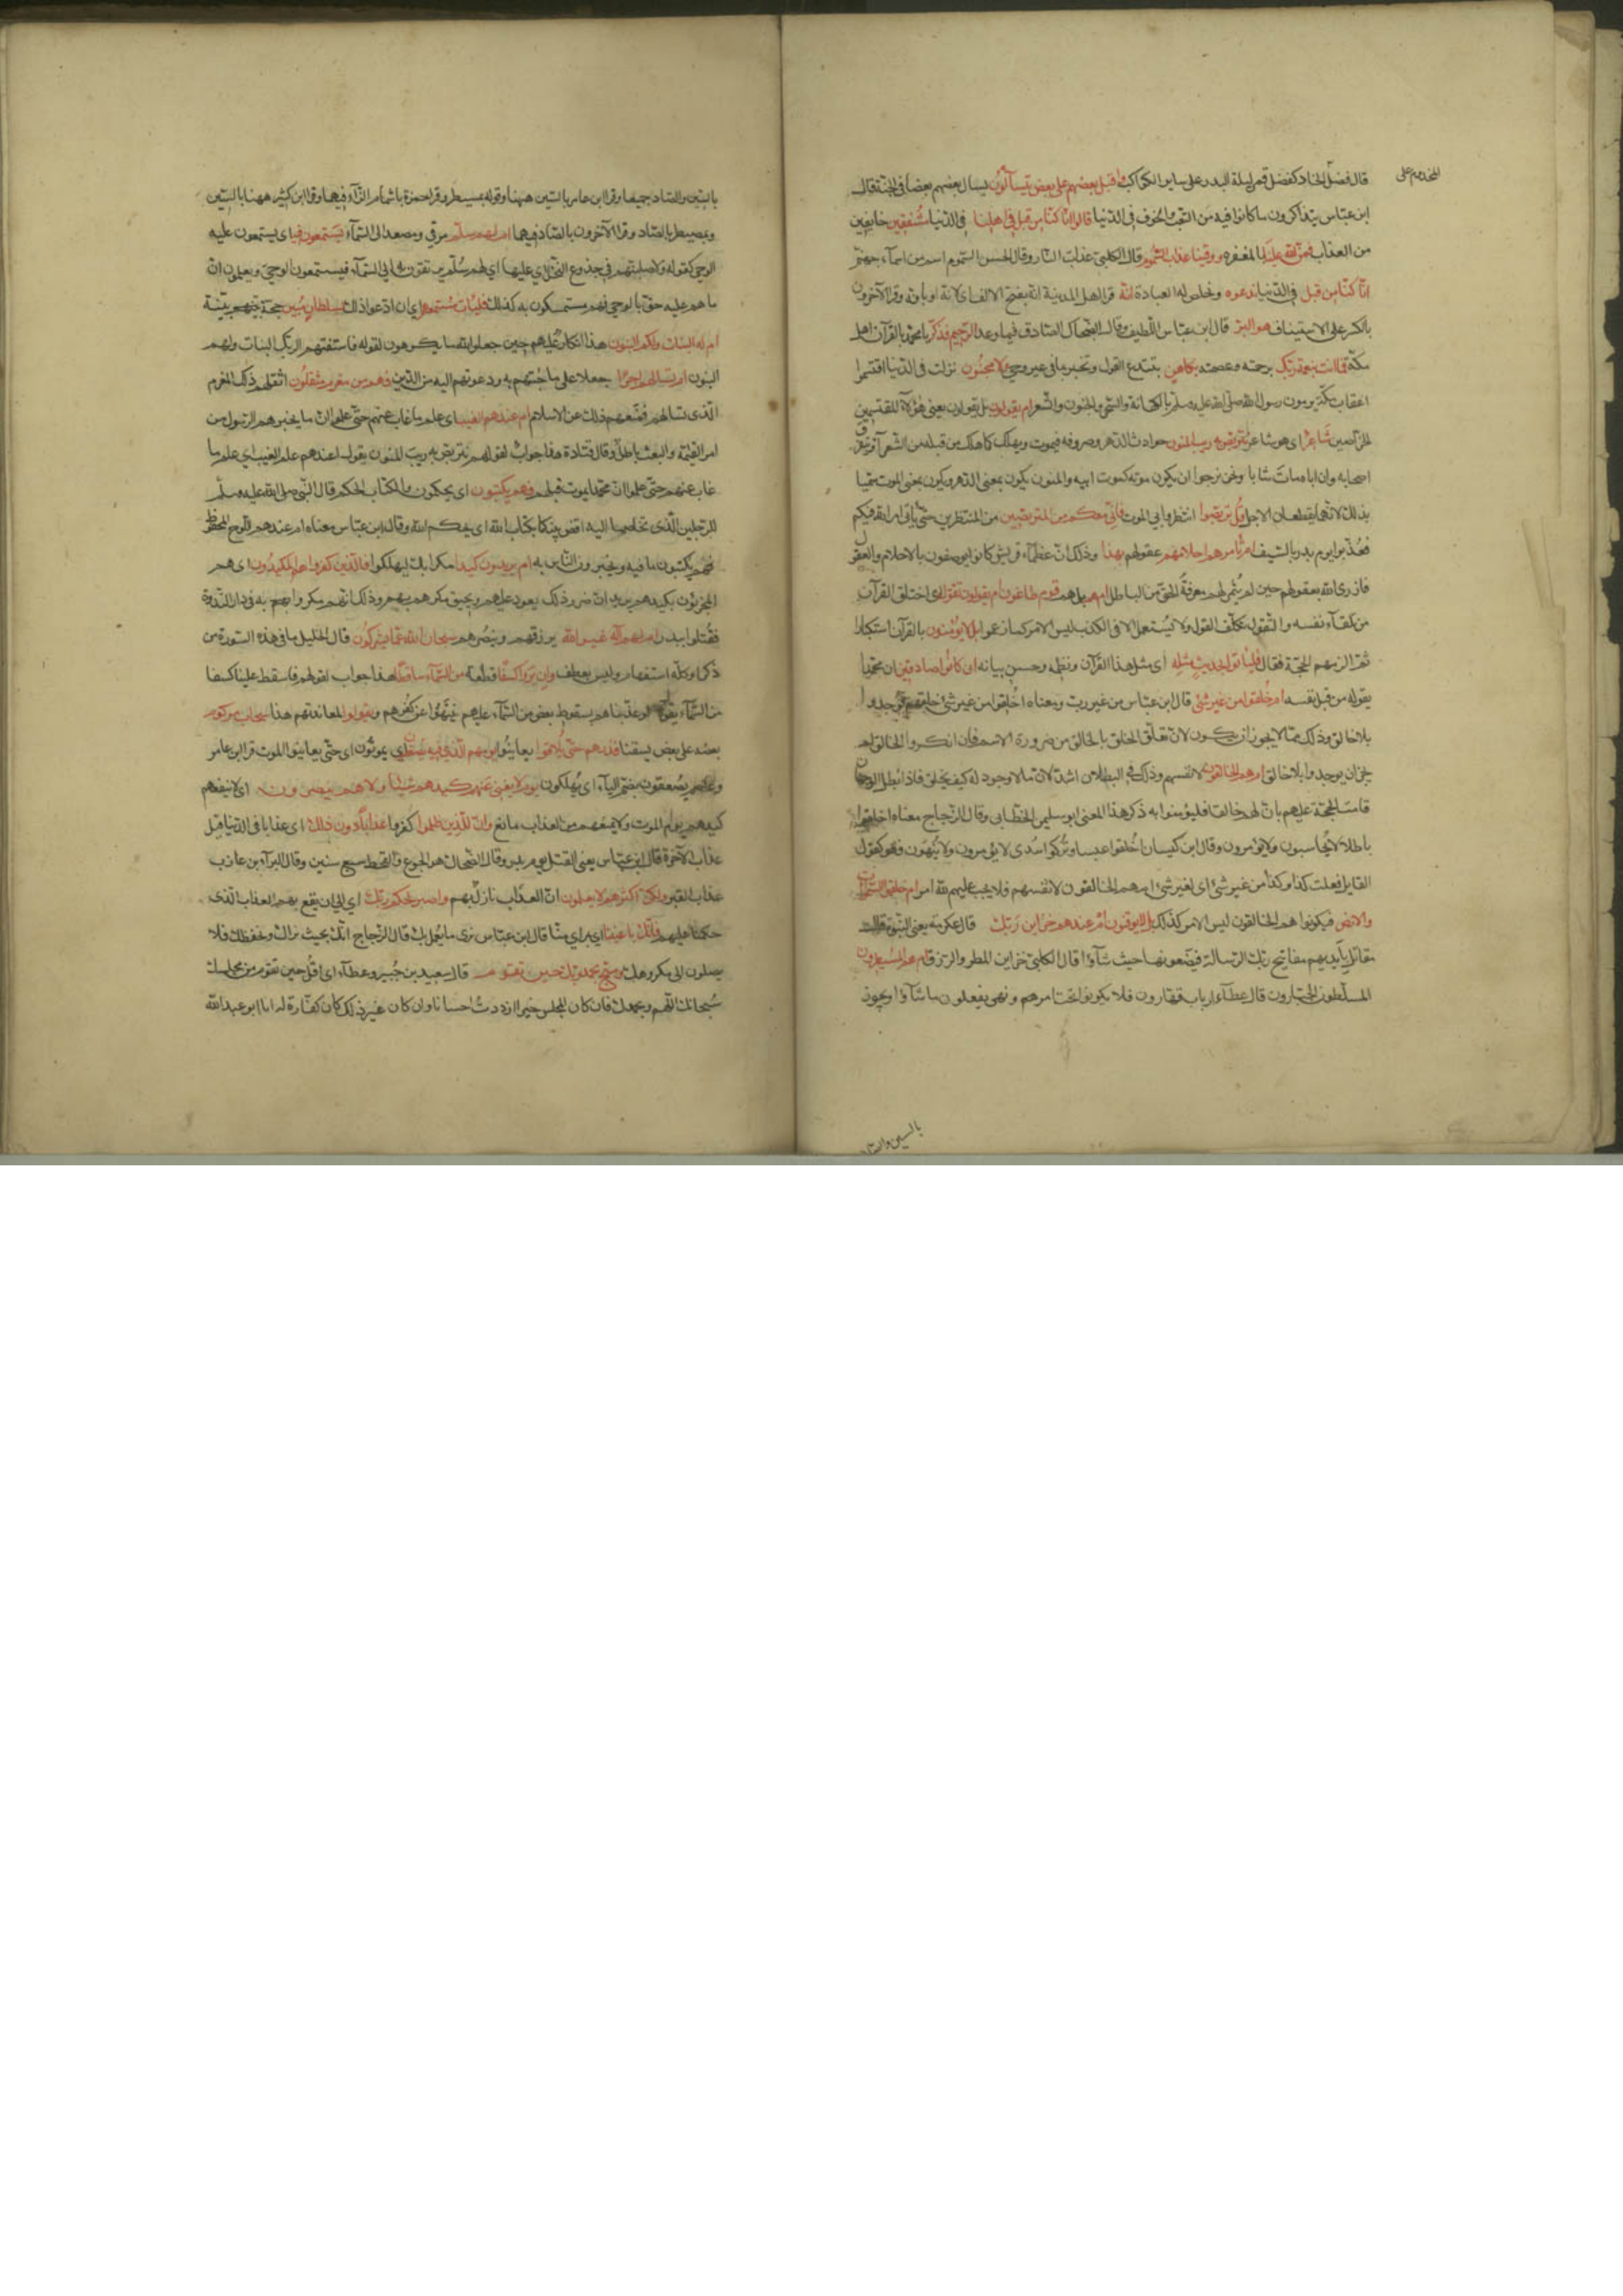 المخدوم على
قال فضل الخادم كفضل قمر ليلة البدر على ساير الكواكب واقبل بعضهم على بعض يتسآئلون يسال بعضهم بعضا فى الجنة قال
ابن عباس يتذاكرون ما كانوا فيه من التعب والخوف فى الدنيا قالوا انا كنا من قبل فى اهلنا فى الدنيا مشفقين خايفين
من العذاب فمن الله علينا بالمغفره ووقينا عذاب السموم قال الكلبى عذاب النار وقال الحسن السموم اسم من اسمآء جهنم
انا كنا من قبل فى الدنيا ندعوه ونخلص له العبادة انه قرا اهل المدينة انه بفتح الالف اى لانه او بانه وقرا الآخرون
بالكسر على الاستيناف هو البر قال ابن عباس اللطيف وقال الضحاك الصادق فيما وعد الرحيم فذكر يا محمد بالقرآن اهل
مكة فما انت بنعمة ربك برحمته وعصمته بكاهن يبتدع القول ويخبر بما فى غد من غير وحى ولا مجنون نزلت فى الذين اقتسموا
اعقاب مكة يرمون رسول الله صلى الله عليه وسلم بالكهانة والسحر والجنون والشعر ام يقولون بل يقولون يعنى هؤلآء المقتسمين
الخراصين شاعر اى هو شاعر نتربص به ريب المنون حوادث الدهر وصروفه فيموت ويهلك كما هلك من قبله من الشعرآء ويتفرق
اصحابه وان اباه مات شابا ونحن نرجوا ان يكون موته كموت ابيه والمنون يكون بمعنى الدهر ويكون بمعنى الموت سميا
بذلك لانهما يقطعان الاجل قل تربصوا انتظروا بى الموت فانى معكم من المتربصين من المنتظرين حتى ياتى امر الله فيكم
فعذبوا يوم بدر بالسيف ام تامرهم احلامهم عقولهم بهذا وذلك ان عظمآء قريش كانوا يوصفون بالاحلام والعقول
فازرى الله بعقولهم حين لم يثمر لهم معرفة الحق من الباطل ام هم بل هم قوم طاغون ام يقولون تقوله اى اختلق القرآن
من تلقآء نفسه والتقول تكلف القول ولا يستعمل الا فى الكذب ليس الامر كما زعموا بل لا يؤمنون بالقرآن استكبارا
ثم الزمهم الحجة فقال فلياتوا بحديث مثله اى مثل هذا القرآن ونظمه وحسن بيانه ان كانوا صادقين ان محمدا
يقوله من قبل نفسه ام خلقوا من غير شئ قال ابن عباس من غير رب ومعناه اخلقوا من غير شئ خلقهم فوجدوا
بلا خالق وذلك مما لا يجوز ان يكون لان تعلق الخلق بالخالق من ضرورة الاسم فان انكروا الخالق لم
يجز ان يوجدوا بلا خالق ام هم الخالقون لانفسهم وذلك فى البطلان اشد لان ما لا وجود له كيف يخلق فاذا بطل الوجهان
قامت الحجة عليهم بان لهم خالقا فليؤمنوا به ذكر هذا المعنى ابو سليمن الخطابى وقال الزجاج معناه اخلقوا
باطلا لا يحاسبون ولا يؤمرون وقال ابن كيسان اخلقوا عبسا وتركوا سدى لا يؤمرون ولا ينهون وهو كقول
القايل فعلت كذا وكذا من غير شئ اى لغير شئ ام هم الخالقون لانفسهم فلا يجب عليهم لله امر ام خلقوا السموات
والارض فيكونوا هم الخالقون ليس الامر كذلك بل لا يوقنون ام عندهم خزاين ربك قال عكرمة يعنى النبوة قال
مقاتل بايديهم مفاتيح ربك الرسالة فيضعونها حيث شآؤا قال الكلبى خزاين المطر والرزق ام هم المسيطرون
المسلطون الجبارون قال عطآء ارباب قهارون فلا يكونوا تحت امرهم ونهى يفعلون ما شآؤا ويجوز
بالسين والصاد
بالسين والصاد جميعا وقرا ابن عامر بالسين ههنا وقوله بمسيطر وقرا حمزة باشمام الزآء فيهما وقرا ابن كثير ههنا بالسين
وبمصيطر بالصاد وقرا الآخرون بالصاد فيهما ام لهم سلم مرقى ومصعد الى السمآء يستمعون فيه اى يستمعون عليه
الوحى كقوله ولاصلبنكم فى جذوع النخل اى عليها اى لهم سلم يرتقون به الى السمآء فيستمعون الوحى ويعلمون ان
ما هم عليه حق بالوحى فهم مستمسكون به كذلك فليات مستمعهم ان ادعوا ذلك بسلطان مبين حجة بينة
ام له البنات ولكم البنون هذا انكار عليهم حين جعلوا لله ما يكرهون لقوله فاستفتهم الربك البنات ولهم
البنون ام تسالهم اجرا جعلا على ما جئتهم به ودعوتهم اليه من الدين فهم من مغرم مثقلون اثقلهم ذلك المغرم
الذى تسالهم فمنعهم ذلك عن الاسلام ام عندهم الغيب اى علم ما غاب عنهم حتى علموا ان ما يخبرهم الرسول من
امر القيمة والبعث باطل وقال قتادة هذا جواب لقولهم نتربص به ريب المنون يقول اعندهم علم الغيب اى علم ما
غاب عنهم حتى علموا ان محمدا يموت قبلهم فهم يكتبون اى يحكمون والكتاب الحكم قال النبى صلى الله عليه وسلم
للرجلين الذى تخاصما اليه اقض بينكما بكتاب الله اى بحكم الله وقال ابن عباس معناه ام عندهم اللوح المحفوظ
فهم يكتبون ما فيه ويخبرون الناس به ام يريدون كيدا مكرا بك ليهلكوك فالذين كفروا هم المكيدون اى هم
المجزيون بكيدهم يريد ان ضرر ذلك يعود عليهم ويحيق مكرهم بهم وذلك انهم مكروا به فى دار الندوة
فقتلوا ببدر ام لهم آله غير الله يرزقهم وينصرهم سبحان الله عما يشركون قال الخليل ما فى هذه السورة من
ذكر ام كله استفهام وليس بعطف وان يروا كسفا قطعة من السمآء ساقطا هذا جواب لقولهم فاسقط علينا كسفا
من السمآء يقول لو عذبناهم بسقوط بعض من السمآء عليهم لم ينتهوا عن كفرهم ويقولوا لمعاندتهم هذا سحاب مركوم
بعضه على بعض يسقينا فذرهم حتى يلاقوا يعاينوا يومهم الذى فيه يصعقون اى يموتون اى حتى يعاينوا الموت قرا ابن عامر
وعاصم يصعقون بضم اليآء اى يهلكون يوم لا يغنى عنهم كيدهم شيئا ولا هم ينصرون اى لا ينفعهم
كيدهم يوم الموت ولا يمنعهم من العذاب مانع وان للذين ظلموا كفروا عذابا دون ذلك اى عذابا فى الدنيا قبل
عذاب الآخرة قال ابن عباس يعنى القتل يوم بدر وقال الضحاك هو الجوع والقحط سبع سنين وقال البرآء بن عازب
عذاب القبر ولكن اكثرهم لا يعلمون ان العذاب نازل بهم واصبر لحكم ربك اى الى ان يقع بهم العذاب الذى
حكمنا عليهم فانك باعيننا اى بمراى منا قال ابن عباس نرى ما يعمل بك قال الزجاج انك بحيث نراك ونحفظك فلا
يصلون الى مكروهك وسبح بحمد ربك حين تقوم قال سعيد بن جبير وعطآء اى قل حين تقوم من مجلسك
سبحانك اللهم وبحمدك فان كان المجلس خيرا ازددت احسانا وان كان غير ذلك كان كفارة له انا ابو عبد الله